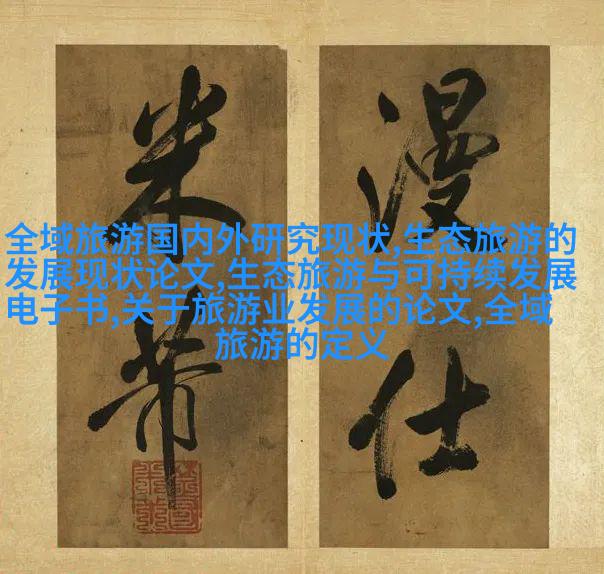 漫仕
米芾
全域旅游国内外研究现状,生态旅游的
发展现状论文,生态旅游与可持续发展
电子书,关于旅游业发展的论文,全域
旅游的定义